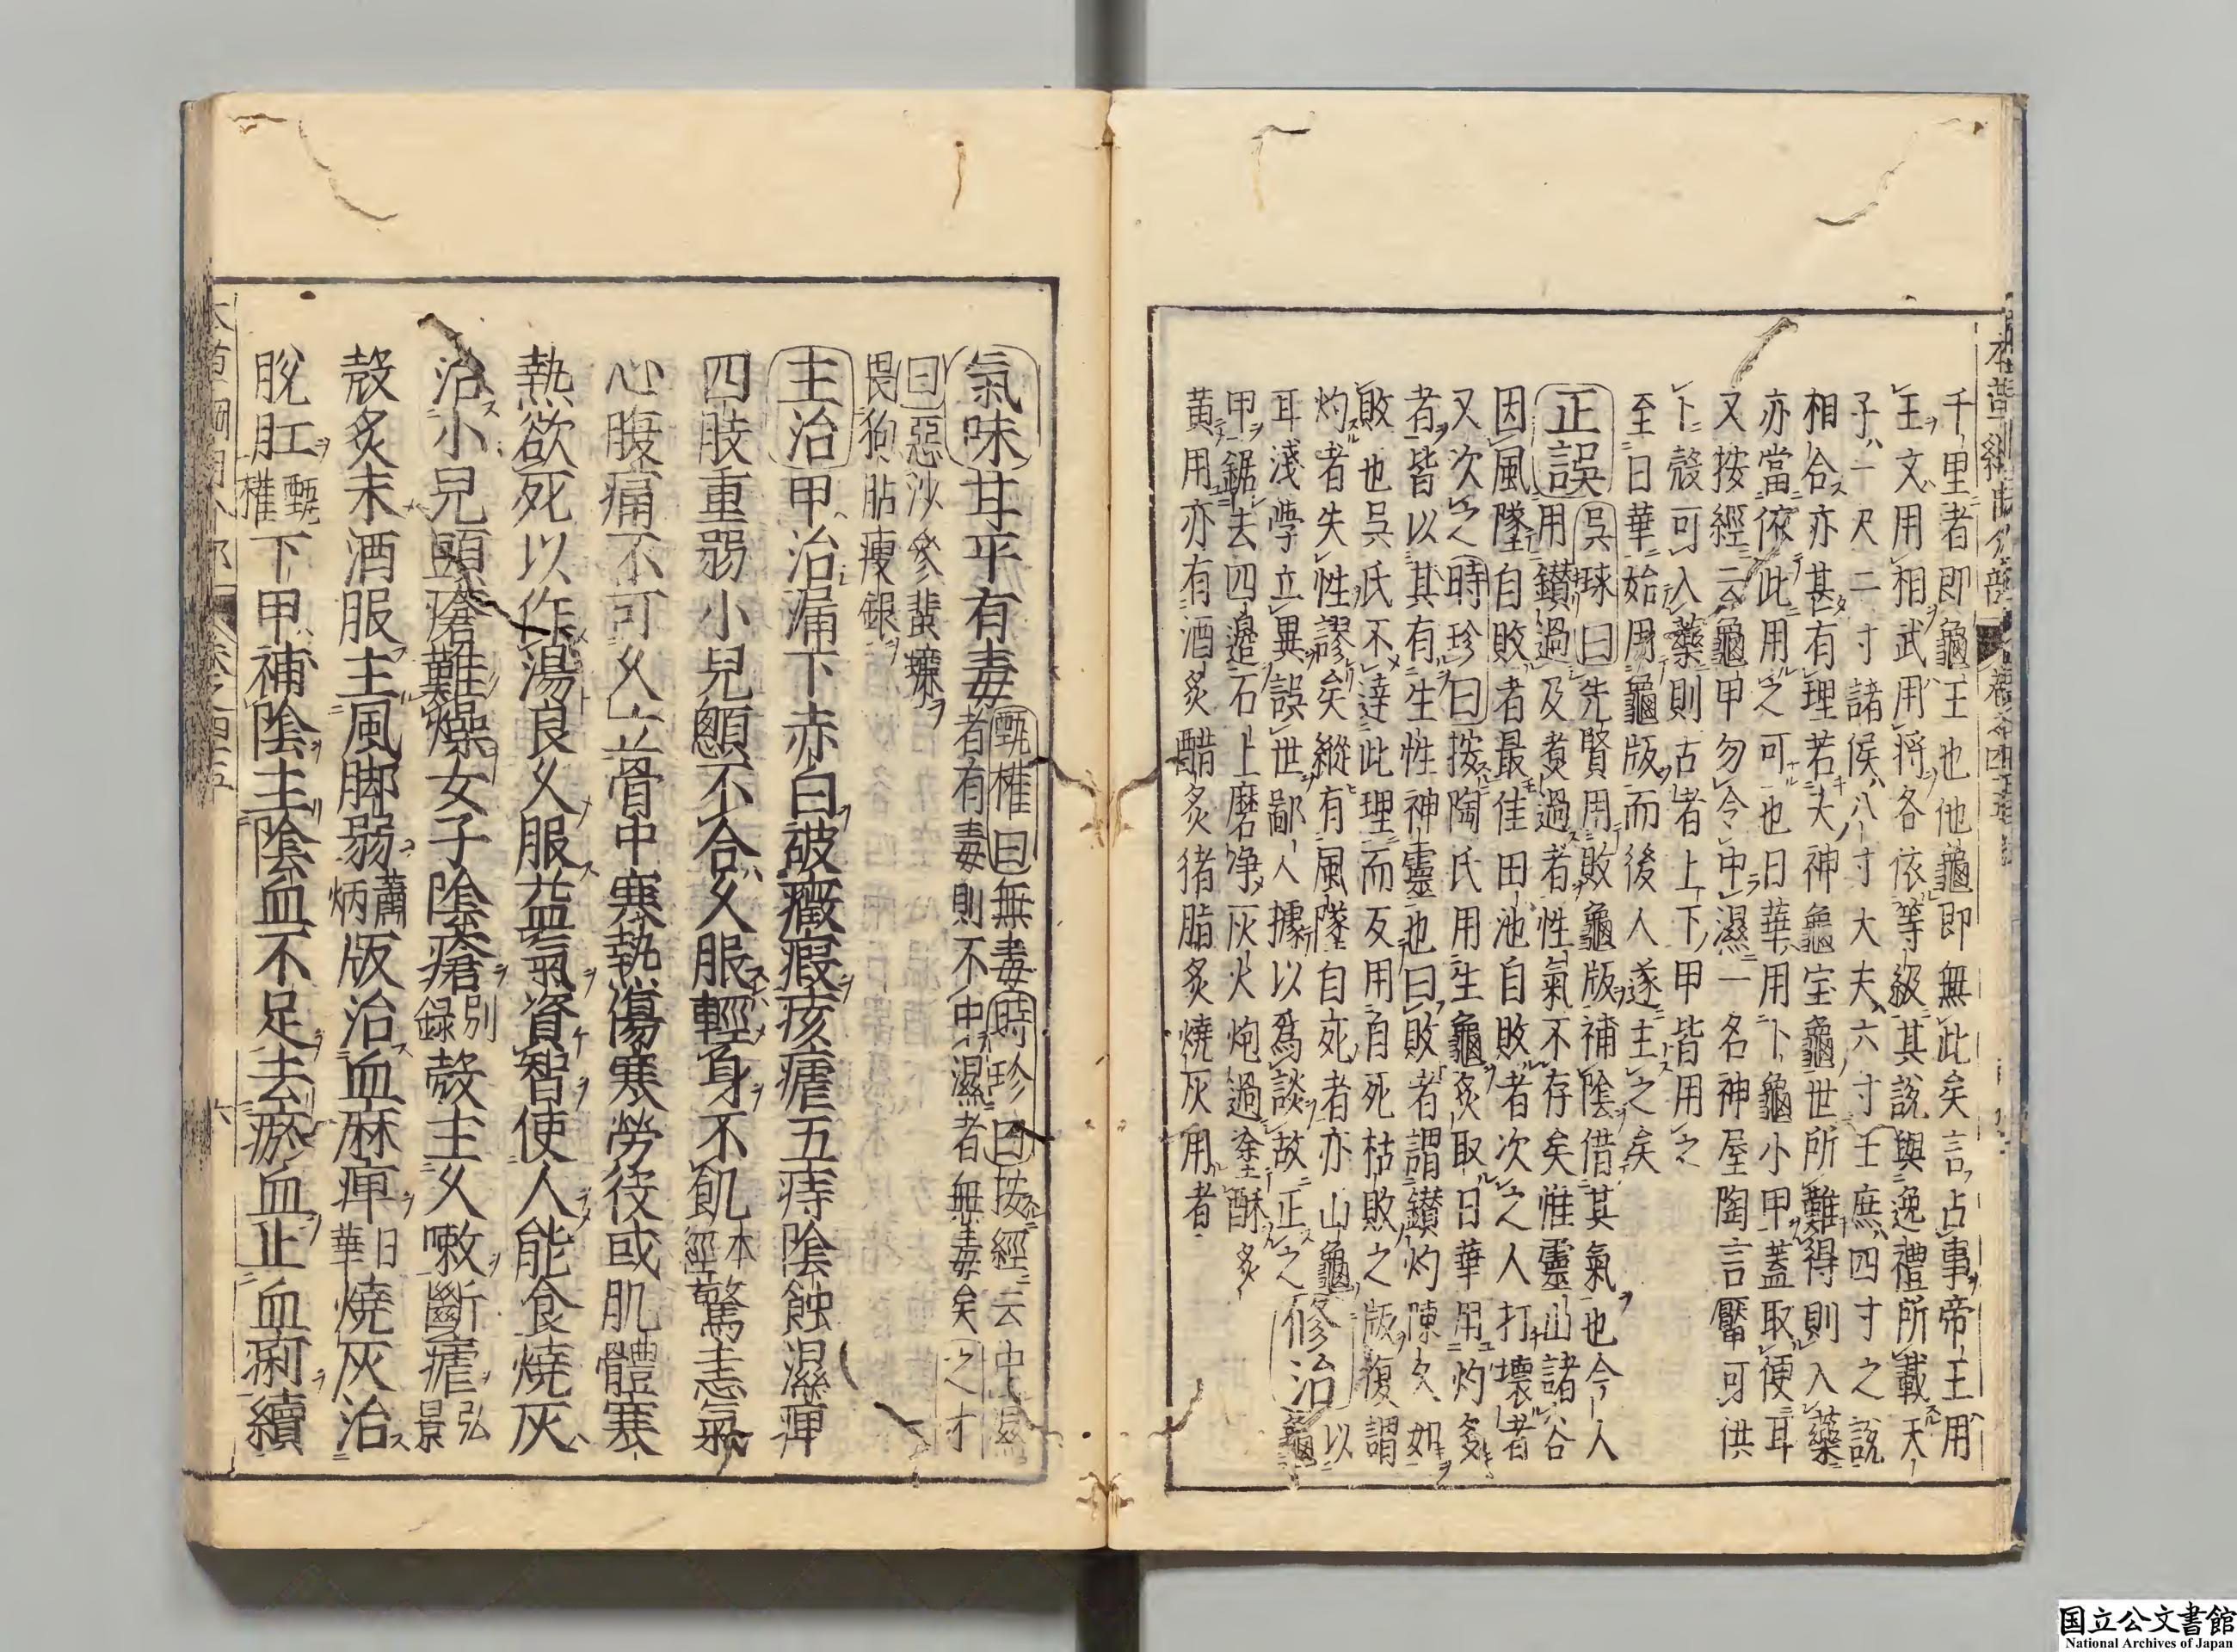 千里者即龜王也他龜即無此矣言占事帝王用
王文用相武用將各依等級其說與逸禮所載天
子一尺二寸諸侯八寸大夫六寸士庶四寸之說
相合亦甚有理若夫神龜宝龜世所難得則入藥
亦當依此用之可也日華用卜龜小甲蓋取便耳
又按經云龜甲勿令中濕一名神屋陶言厴可供
卜殼可入藥則古者上下甲皆用之
至日華始用龜版而後人遂主之矣
正誤 吳球曰先賢用敗龜版補陰借其氣也今人
用鑚過及煑過者性氣不存矣惟靈山諸谷
因風墜自敗者最佳田池自敗者次之人打壞者
又次之時珍曰按陶氏用生龜炙取日華用灼多
者皆以其有生性神靈也曰敗者謂鑚灼陳久如
敗也吳氏不達此理而反用自死枯敗之版復謂
灼者失性謬矣縱有風墜自死者亦山龜
耳淺學立異誤世鄙人據以爲談故正之 修治 以龜
甲鋸去四邉石上磨净灰火炮過塗酥炙
黃用亦有酒炙醋炙猪脂炙燒灰用者
氣味甘平有毒 甄權曰無毒時珍曰按經云中濕
者有毒則不中濕者無毒矣之才
曰惡沙參蜚蠊
畏狗膽瘦銀
主治 甲治漏下赤白破癥瘕痎瘧五痔陰蝕濕痺
四肢重弱小兒顖不合久服輕身不飢本經驚恚氣
心腹痛不可久立骨中寒熱傷寒勞役或肌體寒
熱欲死以作湯良久服益氣資智使人能食燒灰
治小兒頭瘡難燥女子陰瘡別録殼主久嗽斷瘧弘景
殼炙末酒服主風脚弱蕭炳版治血麻痺日華燒灰治
脫肛甄權下甲補陰主陰血不足去瘀血止血痢續
国立公文書館
National Archives of Japan